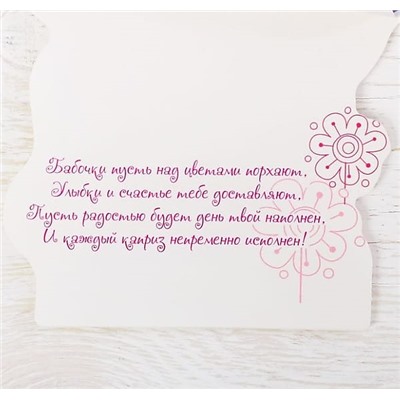 Бабочки пусть над цветами порхают,
Улыбки и счастье тебе доставляют,
Пусть радостью будет день твой наполнен,
И каждый каприз непременно исполнен!